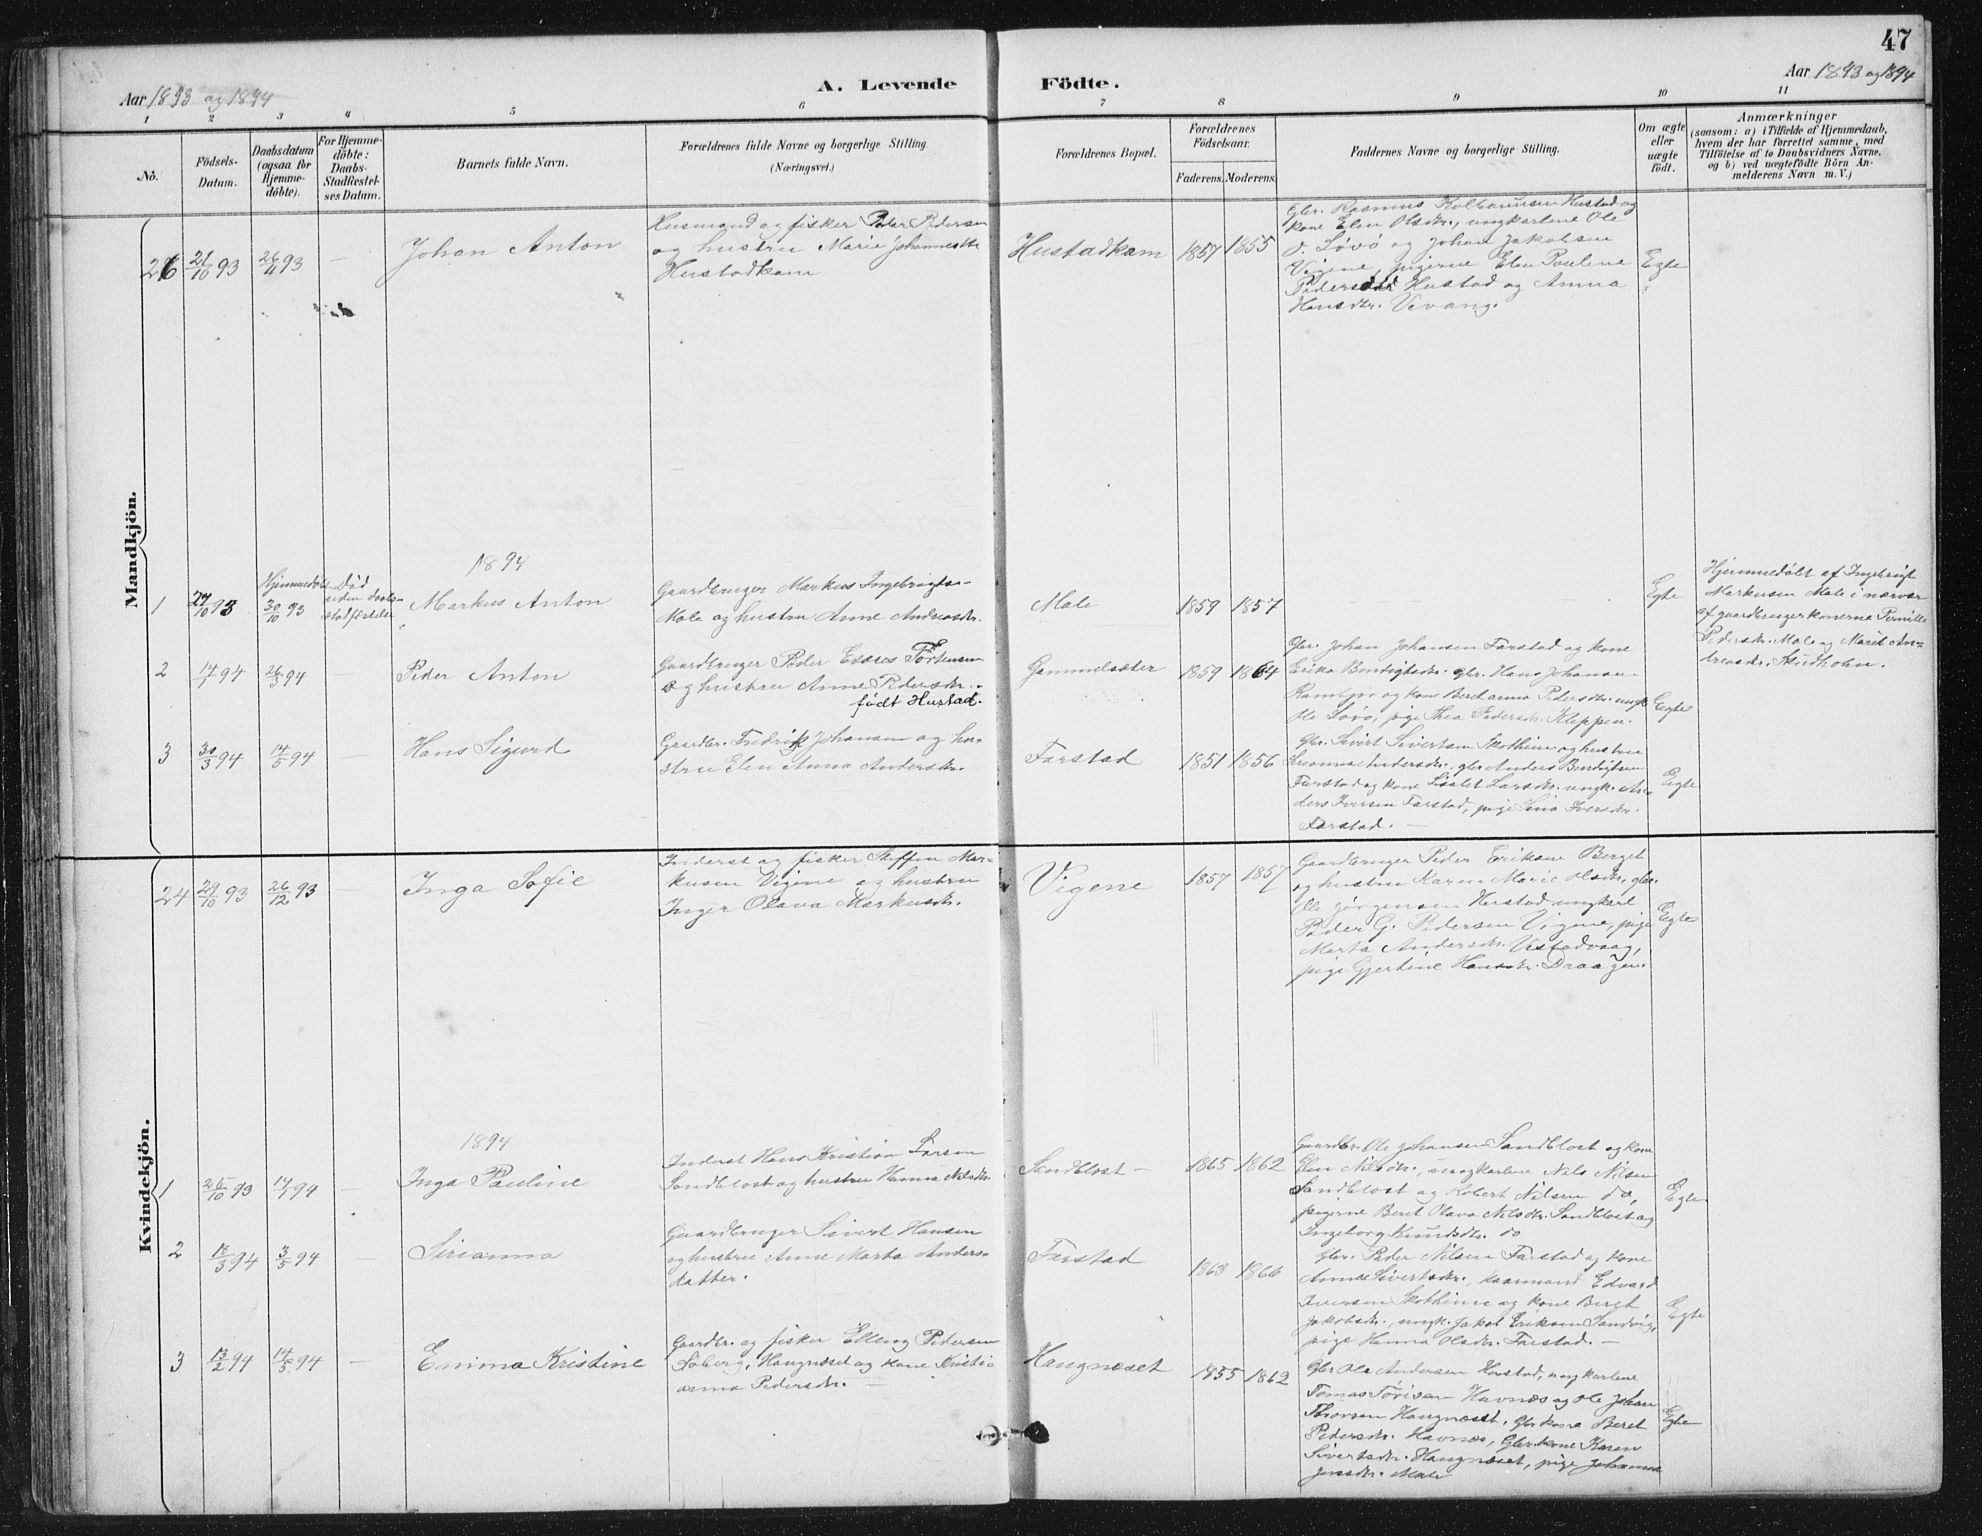 47
Aar 1893 og 1894
A. Levende Födte.
Aar 1893 og 1894
1 2 3 4 5 6 7 8 9 10 11
No.
Födsels-
Datum.
Daabsdatum
(ogsaa for
Hjemme-
döbte).
For Hjemme-
döbte:
Daabs-
Stadfæstel-
ses Datum.
Barnets fulde Navn.
Forældrenes fulde Navne og borgerlige Stilling
(Næringsvei.)
Forældrenes Bopæl.
Forældrenes
Födselsaar.
Faderens. Moderens.
Faddernes Navne og borgerlige Stilling.
Om ægte
eller
uægte
födt.
Anmærkninger
(saasom: a) i Tilfælde af Hjemmedaab,
hvem der har forrettet samme, med
Tilföielse af to Daabsvidners Navne.
og b) ved uægtefödte Börn An-
melderens Navn m. V.)
Mandkjön.
26
21/10 93
26/11 93
—
Johan Anton
Husmand og fisker Peder Pedersen
og hustru Marie Johannesdtr
Hustadkam
Hustadkam
1857 1855
Gbr. Rasmus Kolbeinsen Hustad og
kone Elen Olsdtr., ungkarlene Ole
O. Løvø og Johan Jakobsen
Vigene, pigerne Elen Pauline
Pedersdtr Hustad og Anna
Hansdtr. Vevang.
Egte
1894
1
27/10 93
Hjemmedöbt
30/10 93
Död
siden daabs-
stadfæstelse
Markus Anton
Gaardbruger Markus Ingebrigtsen
Male og hustru Anne Andreasdtr.
Male
1859 1857
Egte
Hjemmedöbt af Ingebrigt
Markusen Male i nærvær
af gaardbrugerkonerne Pernille
Pedersdtr. Male og Marit An-
dreasdtr. Studholm.
2
14/1 94
26/3 94
—
Peder Anton
Gaardbruger Peder Esæas Tørtensen
og hustru Anne Pedersdtr.
født Hustad.
Gammelsæter
1859 1864
Gbr. Johan Johansen Farstad og kone
Erika Bendigtsdtr. gbr. Hans Johansen
og kone Beret anna Pedersdtr. ungk.
Ole Løvø, pige Thea Pedersdtr. Kleppen.
Egte
3
30/3 94
14/5 94
—
Hans Sigurd
Gaardbr. Fredrik Johansen og hu-
stru Elen Anna Andersdtr.
Farstad
1851 1856
Gbr. Sivert Sivertsen Skotheim og hustru
Andersdtr., gbr. Anders Bendigtsen
Farstad og kone Larsdtr. ungk. An-
ders Iversen Farstad, pige Sina Iversdtr.
Farstad. —
Egte
Kvindekjön.
24
29/10 93
26/12 93
—
Inga Sofie
Inderst og fisker Steffen Mar-
kusen Vigene og hustru
Inger Olava Markusdtr.
Vigene
1857 1857
Gaardbruger Peder Eriksen Berget
og hustru Karen Marie Olsdtr, gbr.
Ole Jørgensen Hustad ungkarl
Peder G. Pedersen Vigene, pige
Marta Andersdtr. Vestadvaag,
pige Gjertine Hansdtr. Draagen.
Egte
1894
1
25/10 93
14/1 94
—
Inga Pauline
Inderst Hans Kristian Larsen
Sandblost og hustru Hanna Nilsdtr.
Sandblost —
1865 1862
Gaardbr. Ole Johansen Sandblost og kone
Elen Nilsdtr. ungkarlene Nils Nilsen
Sandblost og Robert Nilsen do,
pigerne Beret Olava Nilsdtr. Sandblost og
Ingeborg Knudsdtr. do
Egte
2
/3 94
3/5 94
—
Sirianna
Gaardbruger Sivert Hansen
og hustru Anne Marta Anders-
datter.
Farstad
1863 1866
Gbr. Peder Nilsen Farstad og kone
Anne Sivertsdtr., kaarmand Edvard
Iversen Skotheim og kone Beret
Jakobsdtr., ungk. Jakob Eriksen Sandvig,
pige Hanna Olsdtr. Farstad. —
Egte
3
13/2 94
14/5 94
—
Emma Kristine
Gaardbr. og fisker Elling Pedersen
Søberg, Haugnæset og kone Kristi-
anna Pedersdtr. —
Haugnæset
1855 1862
Gbr. Ole Andersen Hustad, ungkarlene
Tomas Havnæs og Ole Johan
Thorsen Haugnæset, gbr kone Beret
Pedersdtr. Havnæs, Gbr kone Karen
Sivertsdtr. Haugnæset, pige Johanna
Jensdtr. Male
Egte